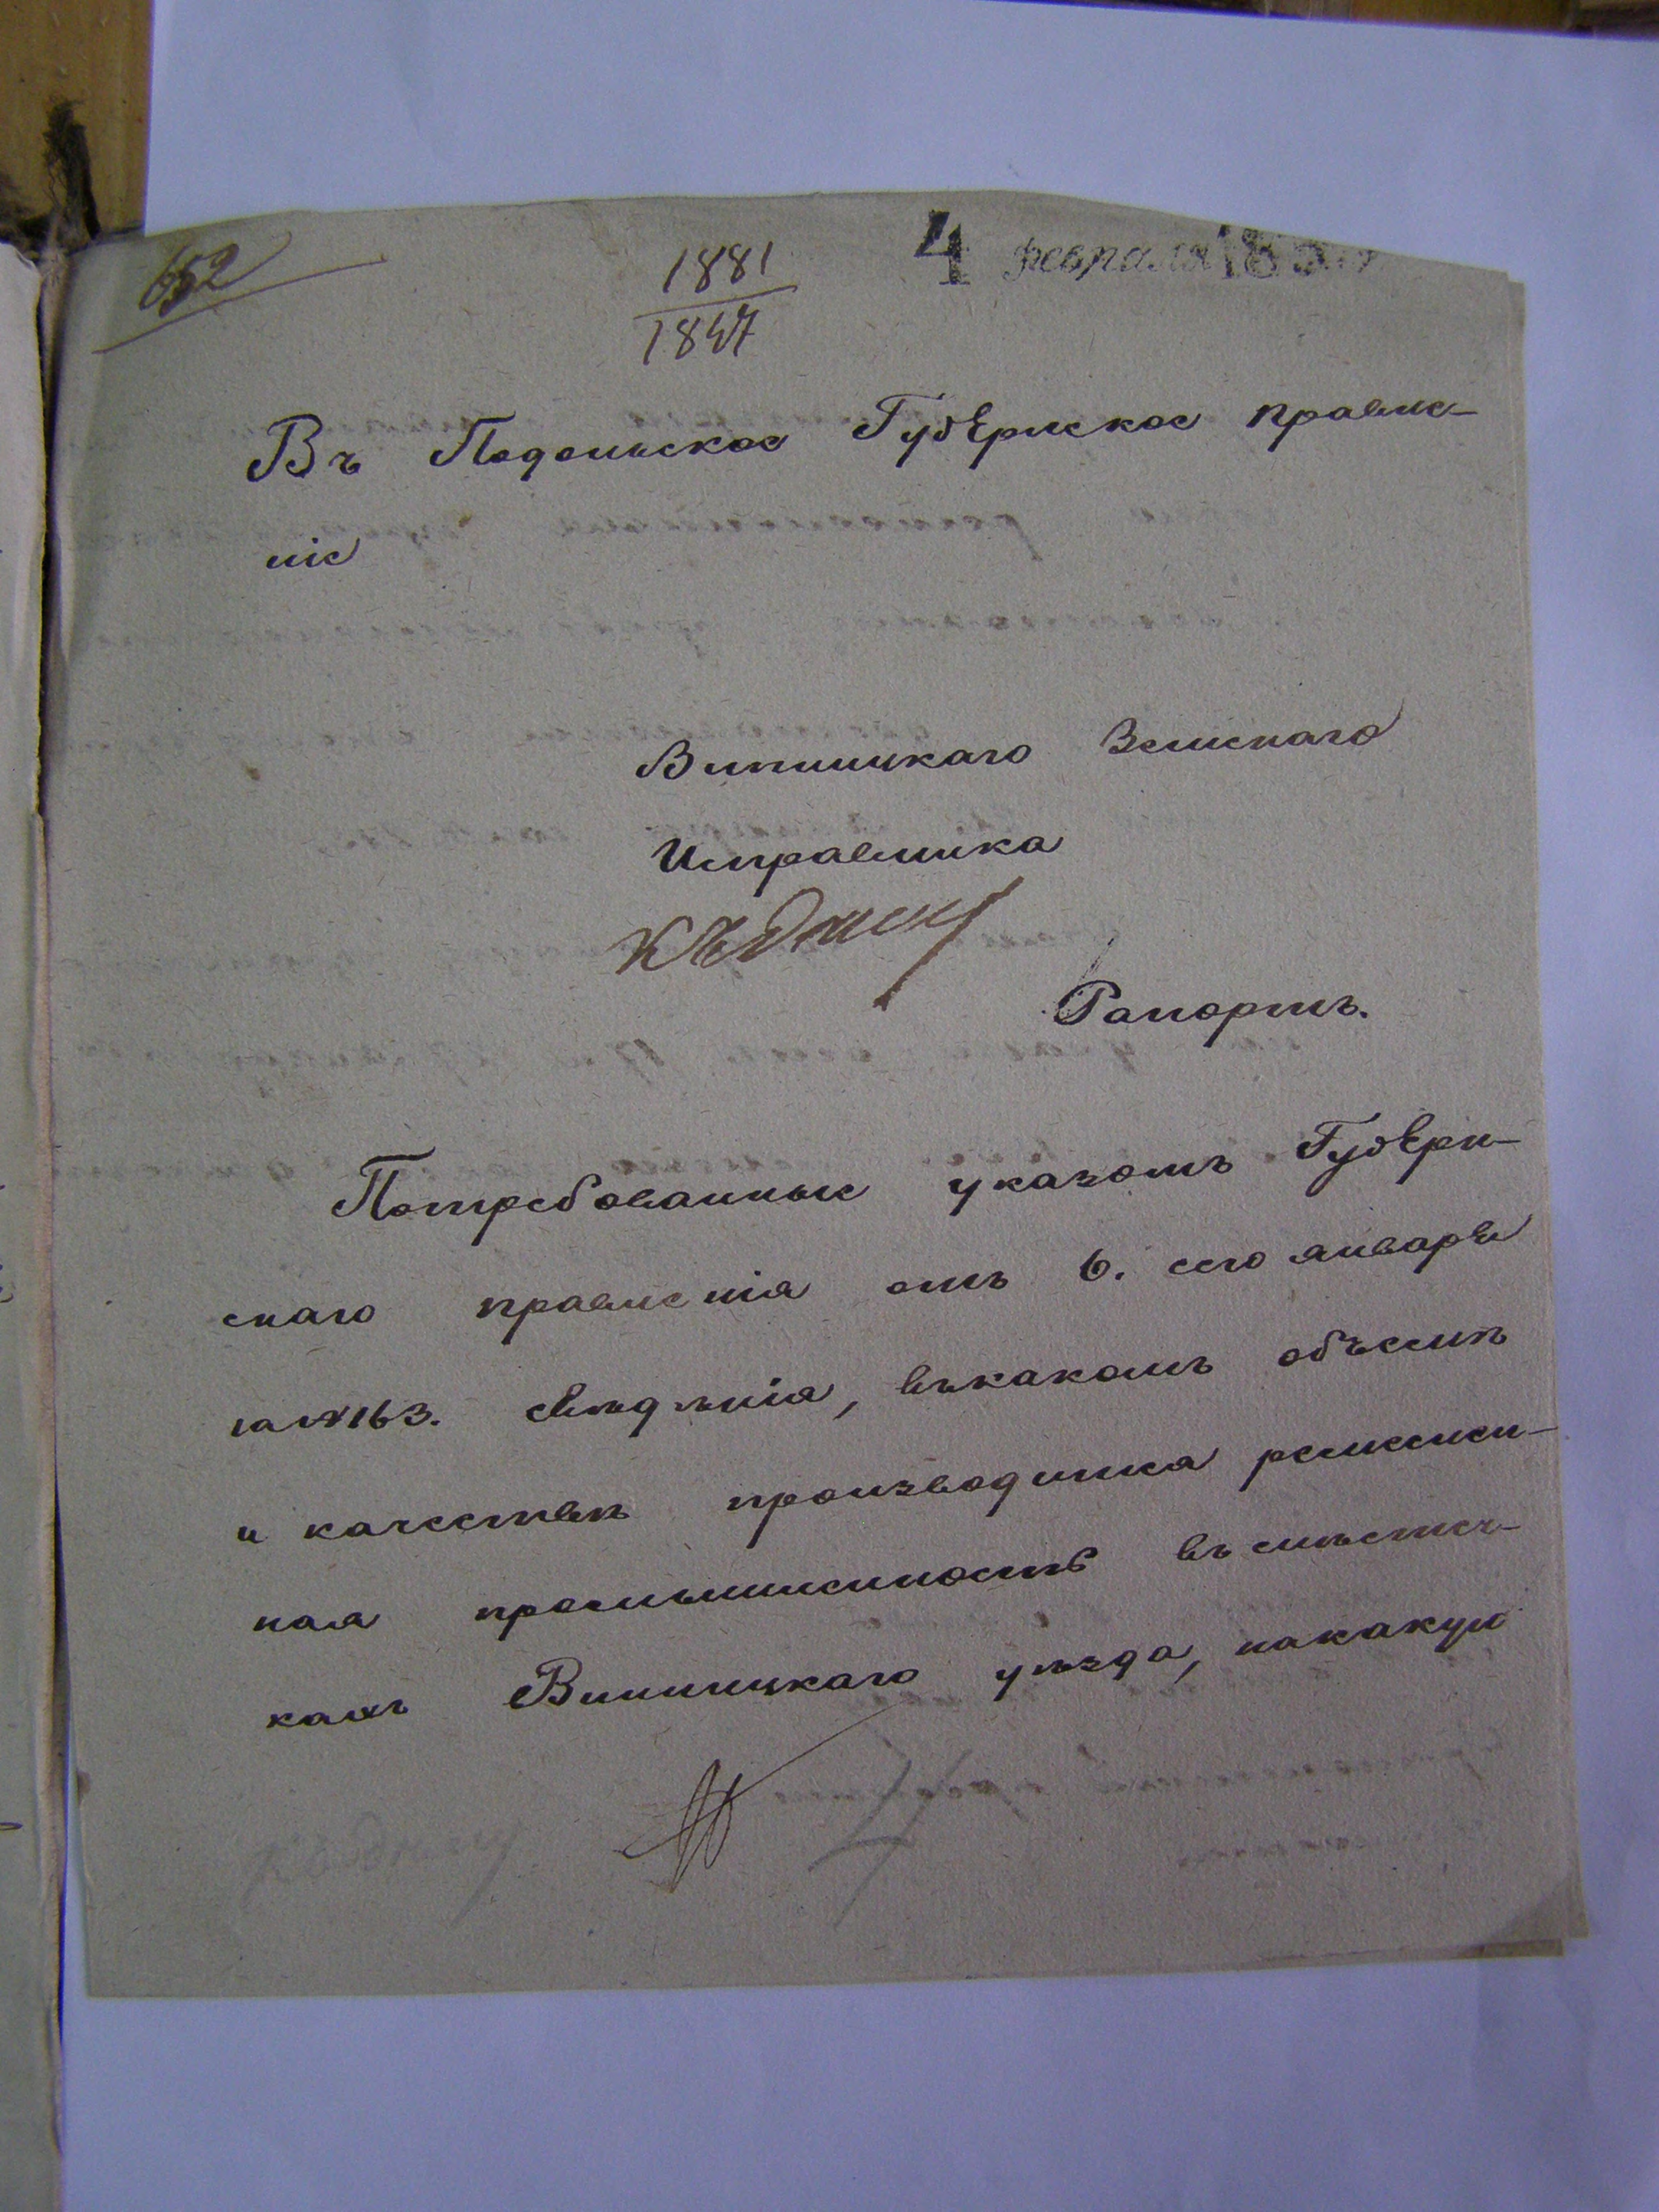 652
1881
1847
4 февраля 185
Въ Подольское Губернское правле-
ніе
Винницкаго Земскаго
Исправника
Къ дѣлу
Рапортъ.
Потребованные указомъ Губерн-
скаго правленія отъ 6. сего января
за №163. свѣденія, въкакомъ объемѣ
и качествѣ производится ремеслен-
ная промышленность въ мѣстеч-
кахъ Винницкаго уѣзда, накакую